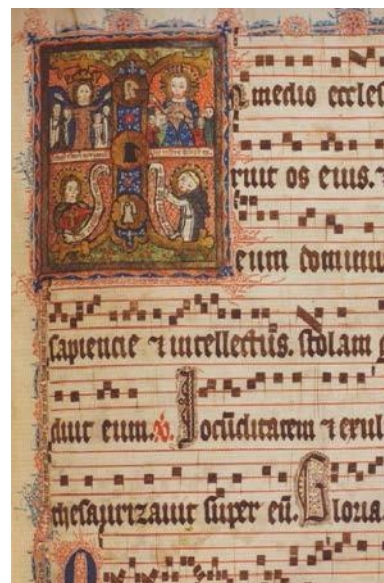 n medio eccles
ruit os eius. 
eum dominu
sapiencie ⁊ intellectus. stolam g
duit eum. ℣. Jocūditatem ⁊ exul
thesaurizauit super eū. Gloria